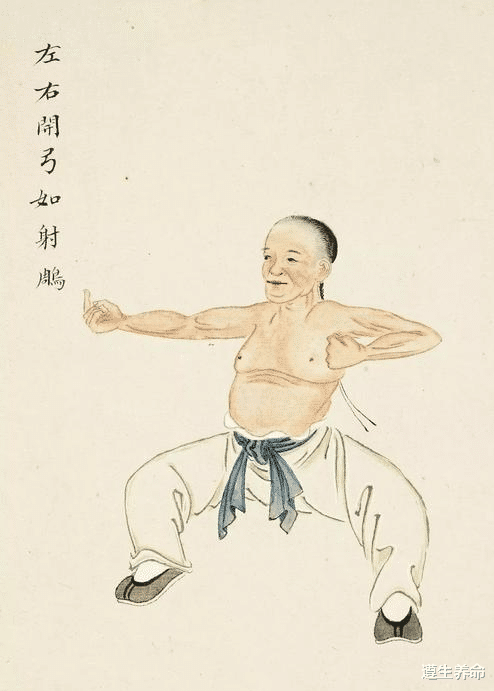 左右開弓如射鵰
遵生養命